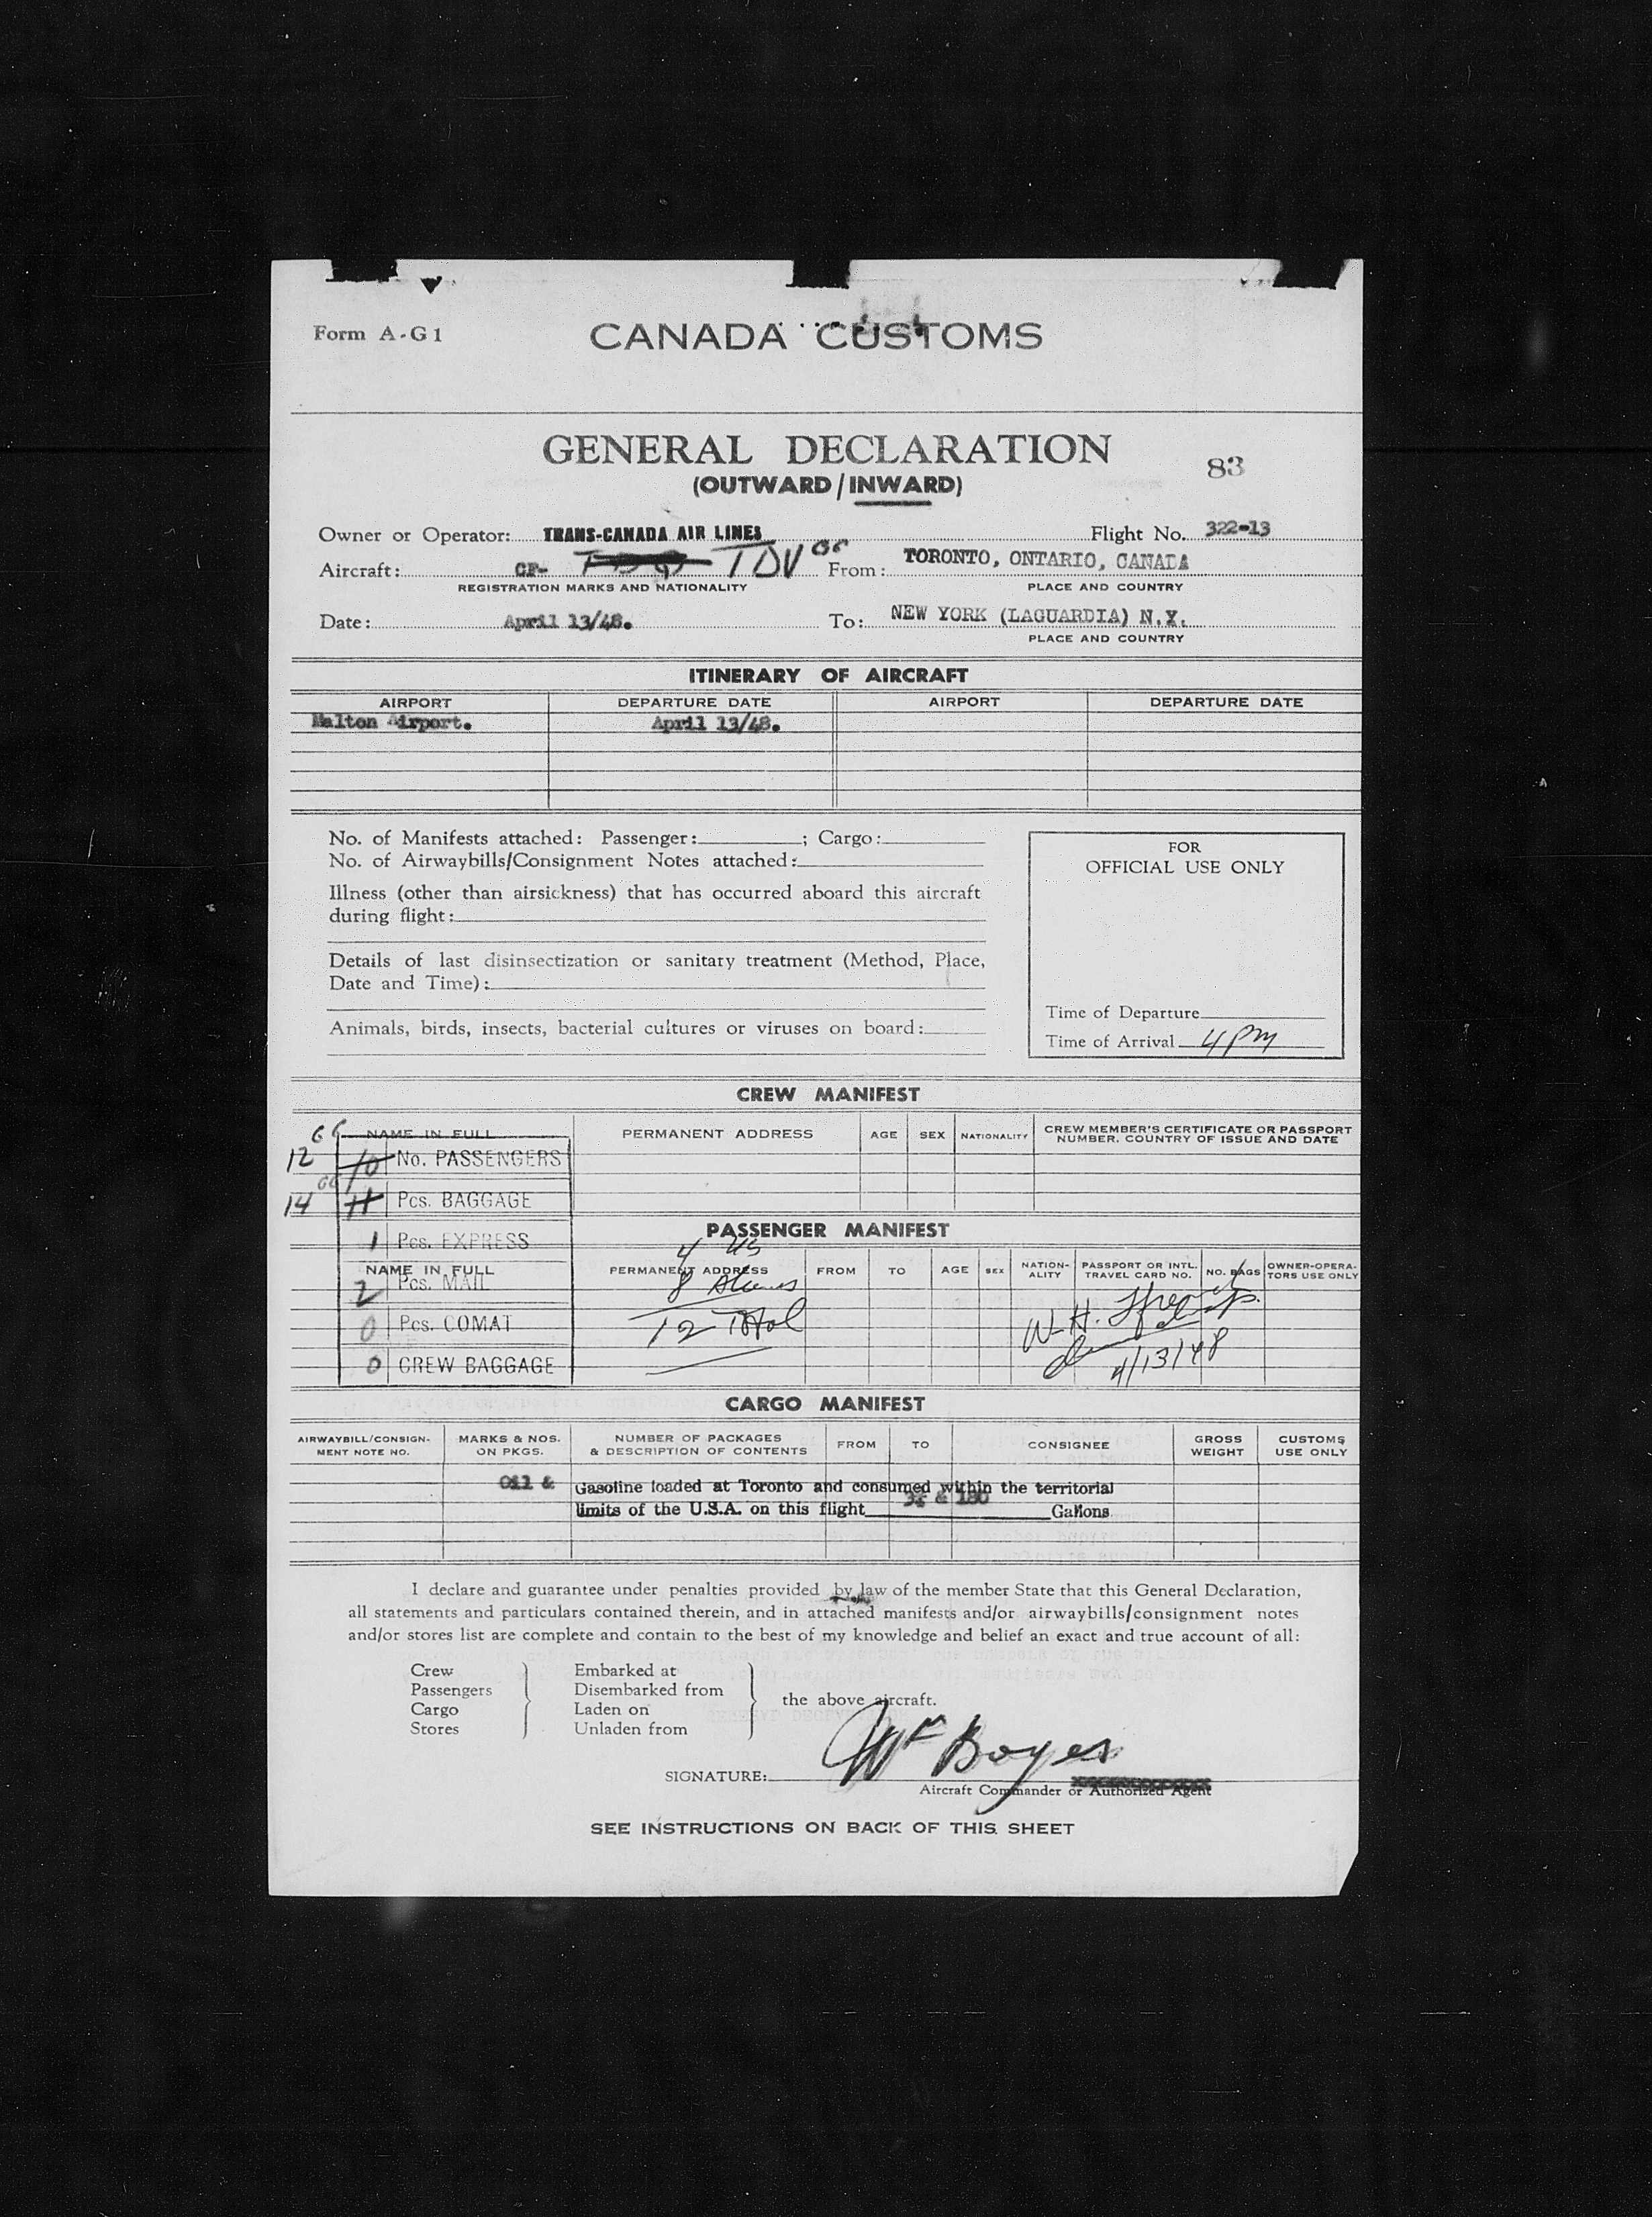 Form A-G1
CANADA CUSTOMS
GENERAL DECLARATION
83
(OUTWARD/INWARD)
Owner or Operator: TRANS-CANADA AIR LINES Flight No. 322-13
Aircraft: CF- TDV GC From: TORONTO, ONTARIO, CANADA
REGISTRATION MARKS AND NATIONALITY PLACE AND COUNTRY
Date: April 13/48. To: NEW YORK (LAGUARDIA) N.Y.
PLACE AND COUNTRY
ITINERARY OF AIRCRAFT
AIRPORT DEPARTURE DATE AIRPORT DEPARTURE DATE
Malton Airport. April 13/48.
No. of Manifests attached: Passenger: ; Cargo:
No. of Airwaybills/Consignment Notes attached:
Illness (other than airsickness) that has occurred aboard this aircraft
during flight:
Details of last disinsectization or sanitary treatment (Method, Place,
Date and Time):
Animals, birds, insects, bacterial cultures or viruses on board:
FOR
OFFICIAL USE ONLY
Time of Departure
Time of Arrival 4 PM
CREW MANIFEST
NAME IN FULL PERMANENT ADDRESS AGE SEX NATIONALITY CREW MEMBER'S CERTIFICATE OR PASSPORT
NUMBER, COUNTRY OF ISSUE AND DATE
GC
12 10 No. PASSENGERS
GC
14 11 Pcs. BAGGAGE
PASSENGER MANIFEST
1 Pcs. EXPRESS
4 US
NAME IN FULL PERMANENT ADDRESS FROM TO AGE SEX NATION-
ALITY PASSPORT OR INTL.
TRAVEL CARD NO. NO. BAGS OWNER-OPERA-
TORS USE ONLY
2 Pcs. MAIL
8 Aliens
0 Pcs. COMAT
12 Total
W.H.
4/13/48
0 CREW BAGGAGE
CARGO MANIFEST
AIRWAYBILL/CONSIGN-
MENT NOTE NO. MARKS & NOS.
ON PKGS. NUMBER OF PACKAGES
& DESCRIPTION OF CONTENTS FROM TO CONSIGNEE GROSS
WEIGHT CUSTOMS
USE ONLY
Oil & Gasoline loaded at Toronto and consumed within the territorial
limits of the U.S.A. on this flight & 180 Gallons
I declare and guarantee under penalties provided by law of the member State that this General Declaration,
all statements and particulars contained therein, and in attached manifests and/or airwaybills/consignment notes
and/or stores list are complete and contain to the best of my knowledge and belief an exact and true account of all:
Crew Embarked at
Passengers Disembarked from
Cargo Laden on
Stores Unladen from
the above aircraft.
SIGNATURE: Boyes
Aircraft Commander or Authorized Agent
SEE INSTRUCTIONS ON BACK OF THIS SHEET